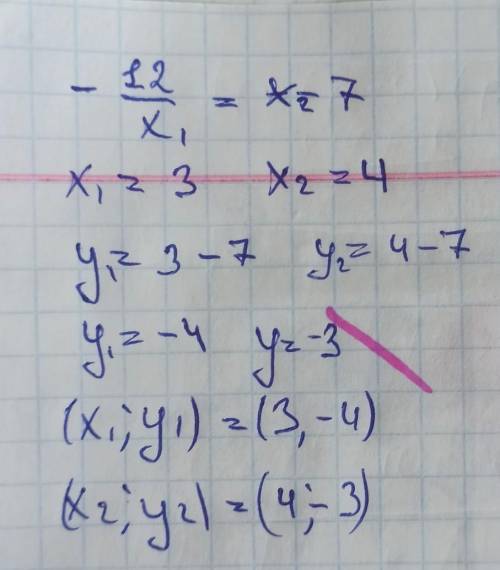 - 12/x₁ = x₂- 7
x₁ = 3 x₂ = 4
y₁ = 3 - 7 y₂ = 4 - 7
y₁ = -4 y = -3
(x₁; y₁) = (3, -4)
(x₂; y₂) = (4; -3)